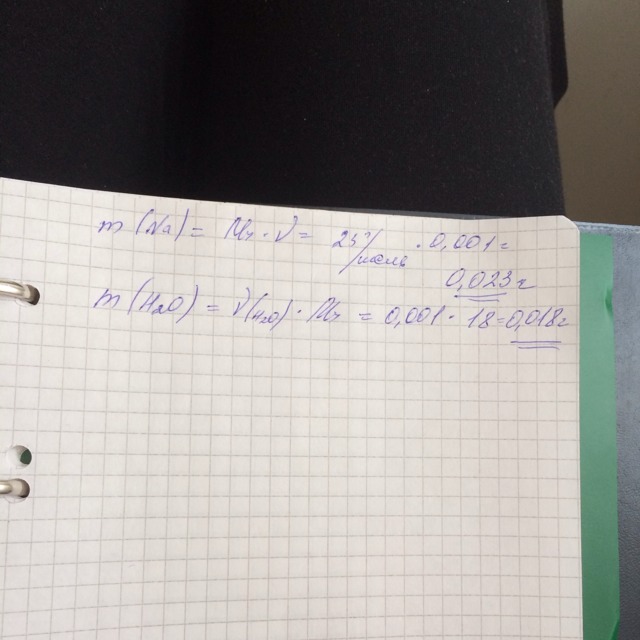 m (Na) = Mr · ν = 23 г/моль · 0,001 =
0,023 г
m (H2O) = ν(H2O) · Mr = 0,001 · 18 = 0,018 г